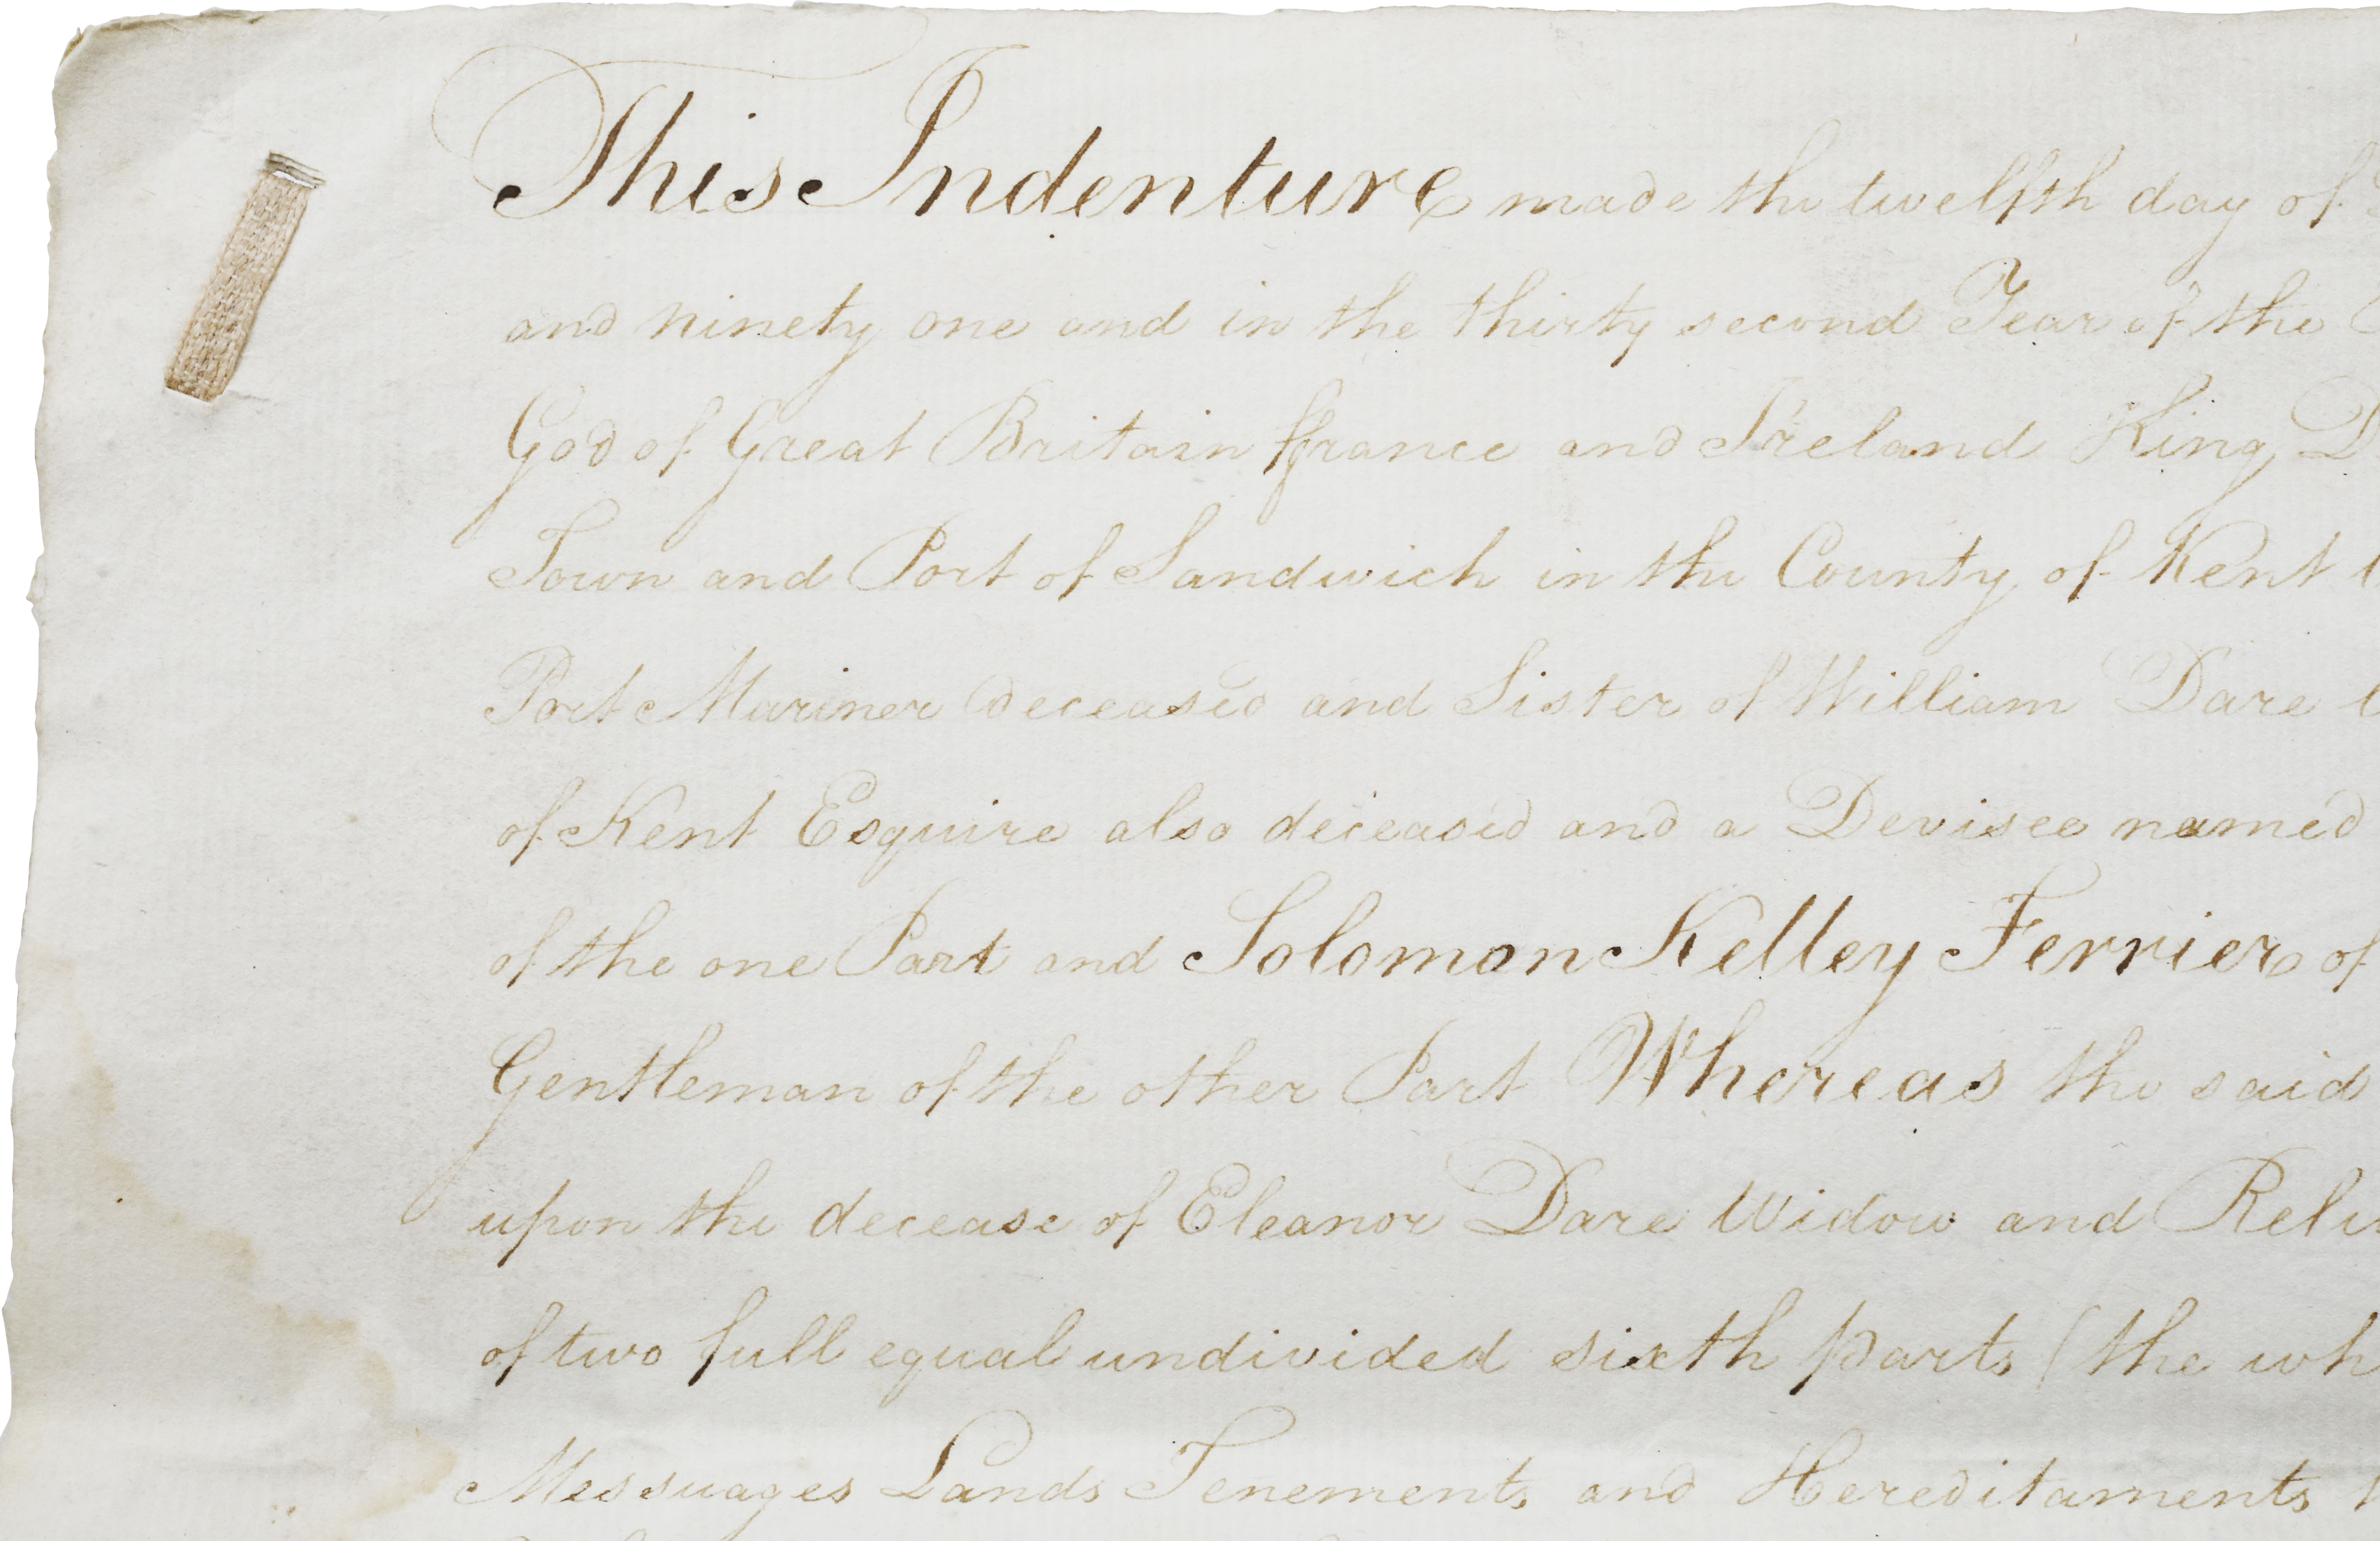 This Indenture made the twelfth day of
and ninety one and in the thirty second Year of the
God of Great Britain ffrance and Ireland King
Town and Port of Sandwich in the County of Kent
Port Mariner deceased and Sister of William Dare
of Kent Esquire also deceased and a Devisee named
of the one Part and Solomon Kelley Ferrier of
Gentleman of the other Part Whereas the said
upon the decease of Eleanor Dare Widow and
of two full equal undivided sixth parts (the
Messuages Lands Tenements and Hereditaments